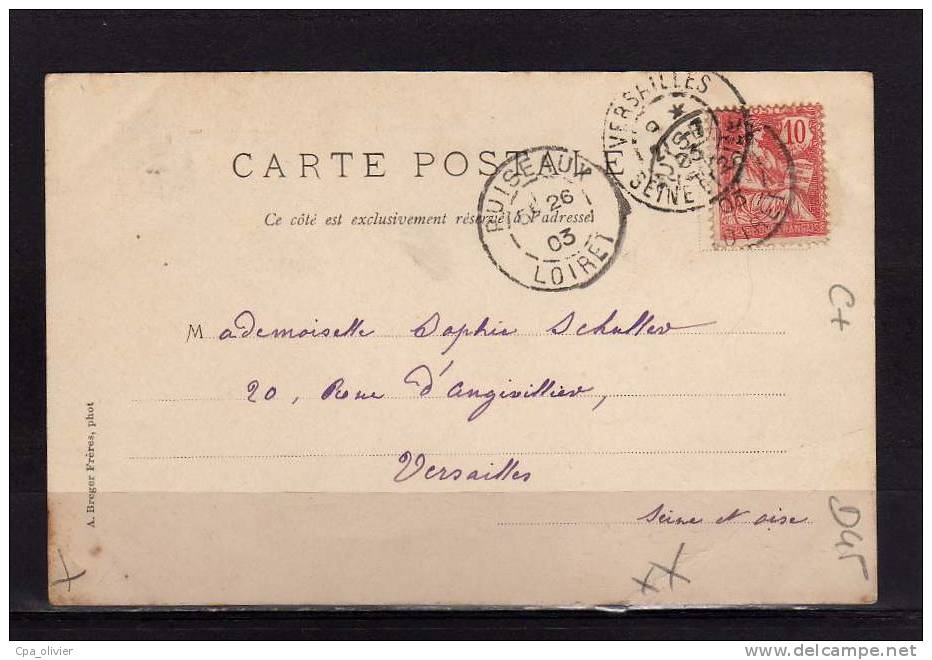 CARTE POSTALE
Ce côté est exclusivement réservé à l'adresse
VERSAILLES
SEINE ET
PUISEAUX
26
03
LOIRET
10
Mademoiselle Sophie Schuller
20, Rue d'Angivillier,
Versailles
Seine et oise
A. Breger Frères, phot
C+
D45
Cpa_olivier
www.delcampe.net